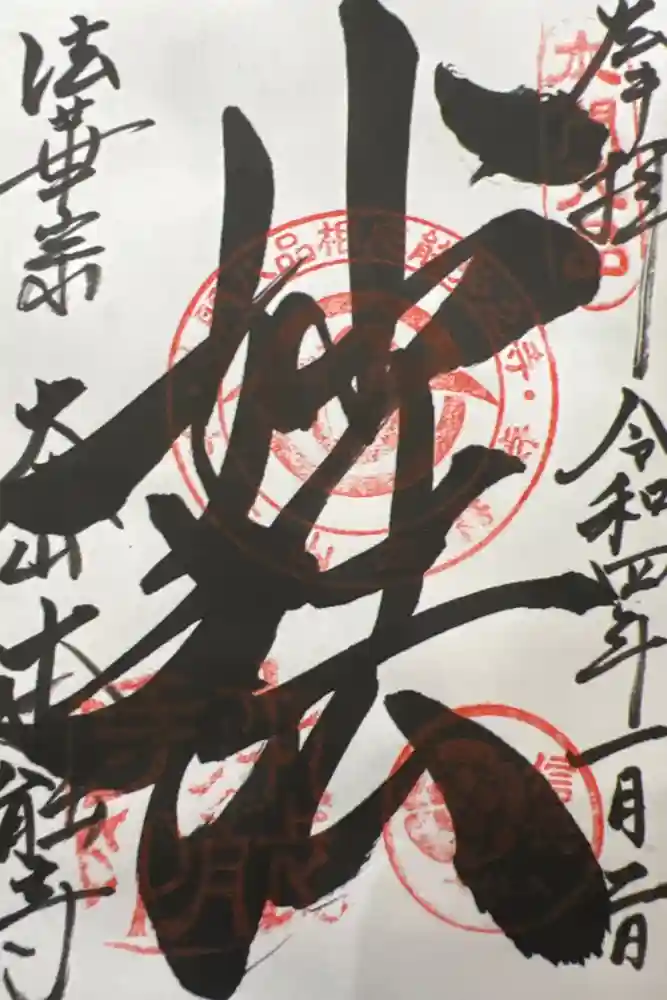 奉拝
令和四年一月二日
妙法
法華宗
大本山本能寺
本門八品
信